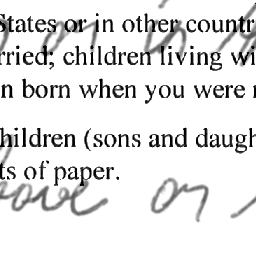 States or in other countr
rried; children living wi
n born when you were
hildren (sons and daugh
ts of paper.
on